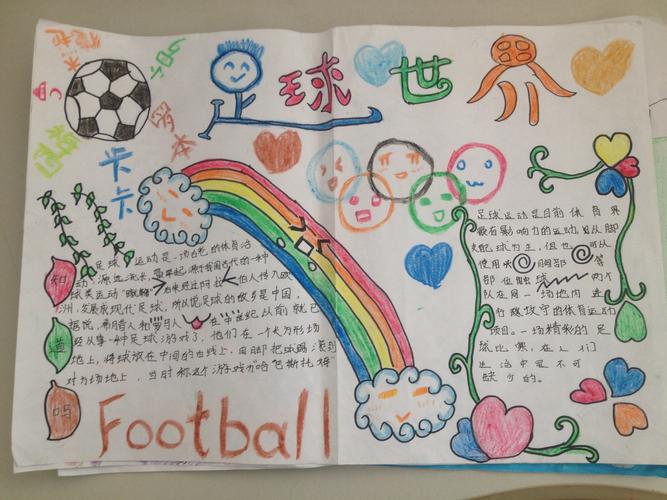 足球世界
卡卡
罗本
足球运动是一场古老的体育活
动,源远流长。最早起源于我国古代的一种
球类运动"蹴鞠"后来经过阿拉伯人传入欧
洲,发展成现代足球。所以说足球的故乡是中国,
据说,希腊人和罗马人在中世纪以前就已
经从事一种足球游戏了。他们在一个长方形场
地上,将球放在中间的白线上,用脚把球踢滚到
对方场地上,当时称这个游戏为"哈巴斯托姆"
知
道
吗
足球运动是目前体育界
最有影响力的运动,以脚
支配球为主,但也可以
使用头胸部等
部位触球两个
队在同一场地内进
行进攻守的体育运动
项目。一场精彩的足
球比赛,在人们
生活中是不可
缺少的。
Football